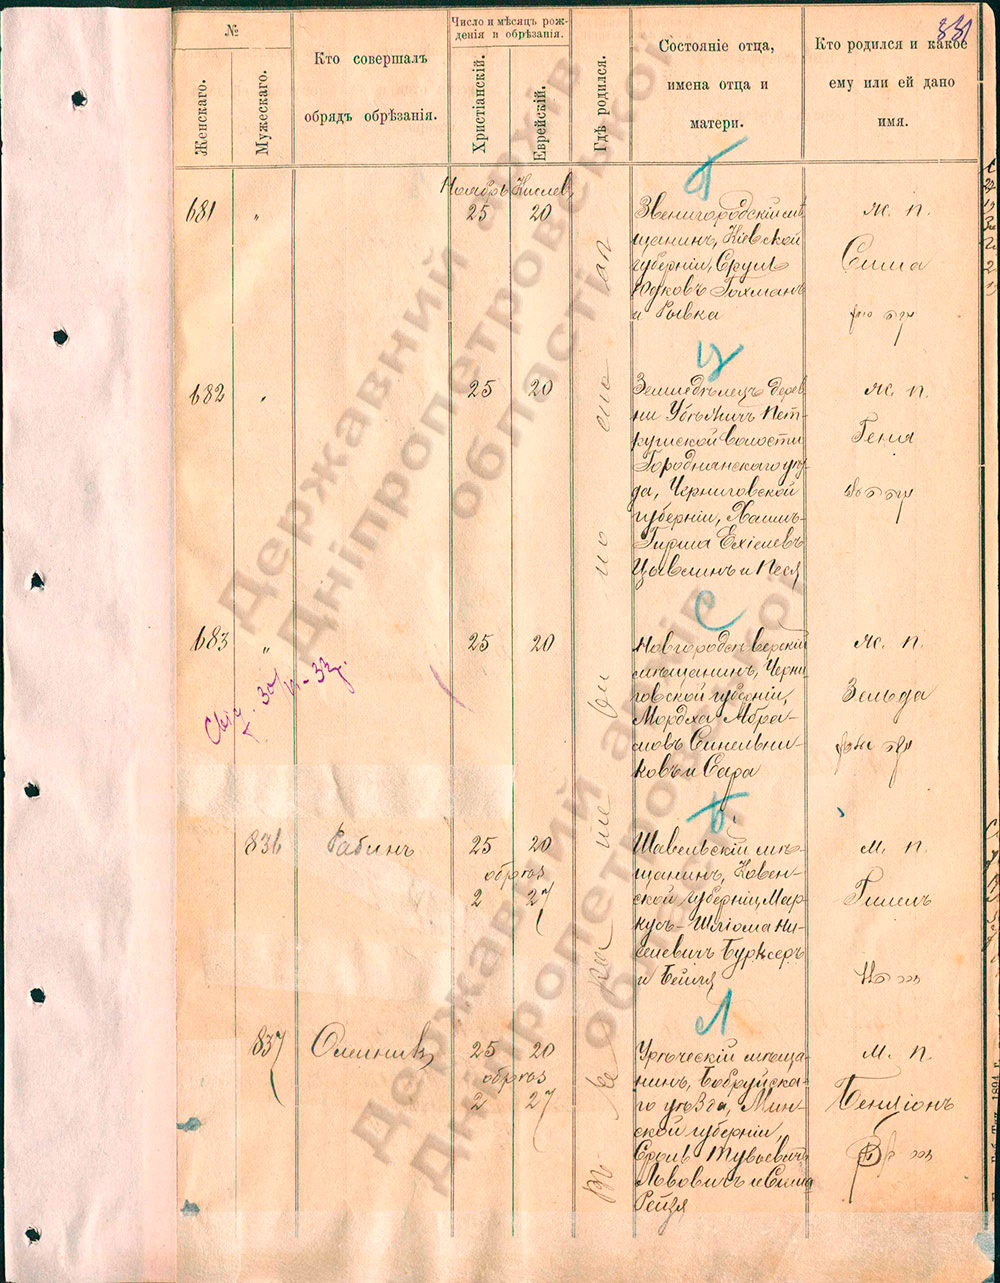 331
№
Женскаго.
Мужескаго.
Кто совершалъ
обрядъ обрѣзанія.
Число и мѣсяцъ рож-
денія и обрѣзанія.
Христіанскій.
Еврейскій.
Гдѣ родился.
Состояніе отца,
имена отца и
матери.
Кто родился и какое
ему или ей дано
имя.
Ноябрь Кислев
Г
681 " 25 20
Звенигородскій мѣ
щанинъ, Кіевской
губерніи, Срулъ
Юдковъ Гохманъ
и Рывка
ж. п.
Сима
Ц
682 " 25 20
Земледѣлецъ дерев
ни Убѣжичъ Пет-
рушской волости
Городнянскаго уѣз-
да, Черниговской
губерніи, Хаимъ-
Гирша Ехіелевъ
Цывлинъ и Песя
ж. п.
Геня
С
683 " 25 20
Новгородсѣверскій
мѣщанинъ, Черни
говской губерніи,
Мордха Абра-
мовъ Синельни-
ковъ и Сара
ж. п.
Зельда
30/VI-33г.
Б.
836 Рабинъ 25 20
обрѣз
2 27
Шавельскій мѣ-
щанинъ, Ковен-
ской губерніи, Мар-
кусъ-Шліома Ни-
селевичъ Бурксеръ
и Бейля
м. п.
Гилель
Л
837 Олейникъ 25 20
обрѣз
2 27
мѣща-
нинъ, Бобруйска-
го уѣзда, Мин-
ской губерніи,
Сроль Тувьевичъ
Львовичъ и Сима
Рейзя
м. п.
Бенціонъ
Въ
Державний архів
Дніпропетровської
області
Державний архів
Дніпропетровської
області